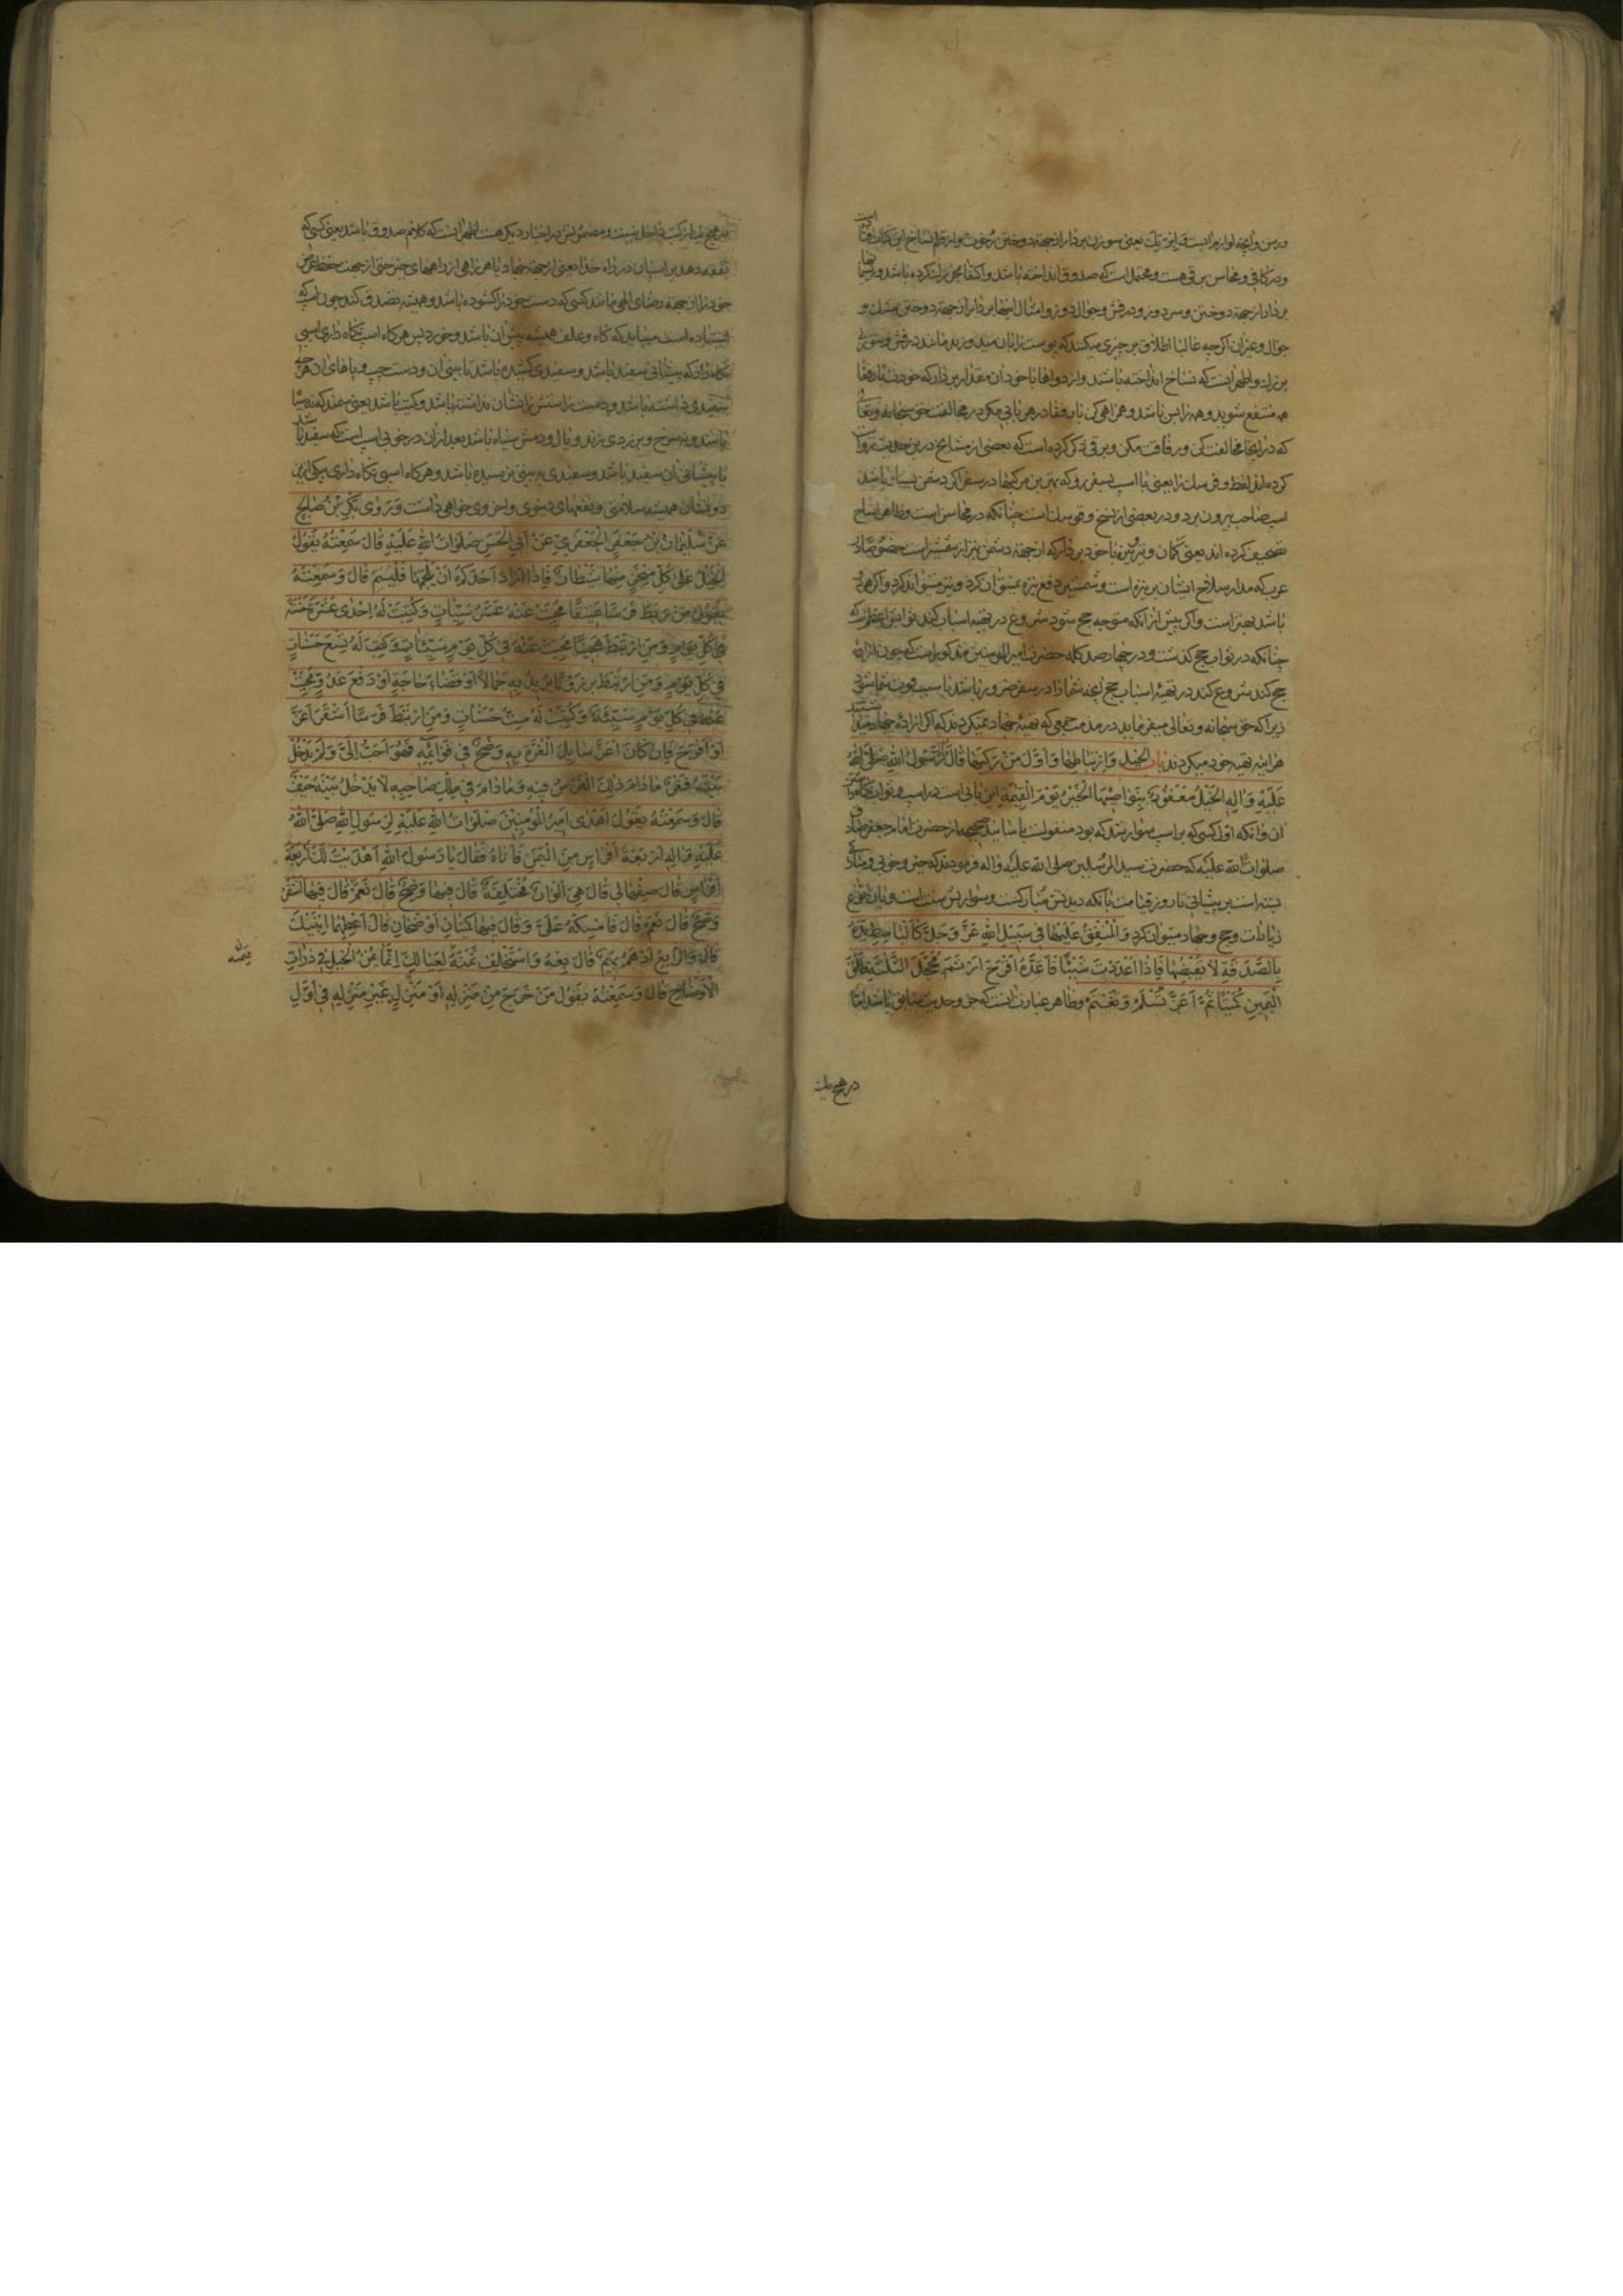 ورسن وآنچه لوازم آنست و ابرة يك يعنى سوزن بردار از جهة دوختن رخوت و از قلم نساخ اين كتاب افتاده است
ودر كافى و محاسن برقى هست و محتمل است كه صدوق انداخته باشد و اكتفا بخرز كرده باشد و ريسمانها
بردار از جهة دوختن و سردوز و درفش و جوال دوز و امثال اينها بردار از جهة دوختن مشك و
جوال وغير آن اكرچه غالبا اطلاق بر چيزى ميكنند كه پوست را بآن ميدوزند مانند درفش و سوزن
واظهر آنست كه نساخ انداخته باشند و از دواها با خود آن مقدار بردار كه خود با رفقا
همه منتفع شويد و همراهى كن با رفقا در هر بابى مكر در مخالفت حق سبحانه وتعالى
كه در آنجا مخالفت كن و رفاقت مكن و برقى ذكر كرده است كه بعضى از مشايخ درين حديث روايت
كرده اند لفظ و فرسك را يعنى با اسب بسفر رو كه بهترين مركبها در سفر اگر دشمن بسيار باشد
اسب صاحب بيرون برد و در بعضى از نسخ وقوسك است چنانكه در محاسن است وظاهرا نساخ
تصحيف كرده اند يعنى كمان وتير با خود بردار كه از جهة دشمن بهتر از شمشير است خصوصا از
عرب كه مدار سلاح ايشان بر نيزه است و شمشير دفع نيزه نميتوان كرد و بتير ميتوان كرد واكر هر دو
باشد بهتر است واكر پيش از آنكه متوجه حج شود شروع در تهيه اسباب كند ثوابش اعظم است
چنانكه در ثواب حج كذشت و در چهار صد كلمه حضرت امير المؤمنين مذكور است كه چون اراده
حج كند شروع كند در تهيه اسباب حج آنچه شما را در سفر ضرور باشد يا سبب قوت شما شود
زيرا كه حق سبحانه وتعالى ميفرمايد در مذمت جمعى كه تهيه جهاد نميكردند كه اكر اراده جهاد ميداشتند
هر اينه تهيه خود ميكردند باب الخيل وارتباطها واول من ركبها قال رسول الله صلى الله
عليه واله الخيل معقود بنواصيها الخير يوم القيمة اين بابى است در اسب و ثواب نكاه داشتن
آن و آنكه اول كسى كه بر اسب سوار شد كه بود منقولست باسانيد صحيحه از حضرت امام جعفر صادق
صلوات الله عليه كه حضرت سيد المرسلين صلى الله عليه واله فرمودند كه خير و خوبى
بسته است بر پيشانى تا روز قيامت بآنكه ديدنش مباركست و سواريش سنت است و بآن انواع
زيارات وحج وجهاد ميتوان كرد والمنفق عليها فى سبيل الله عز وجل كالباسط يده
بالصدقة لا يقبضها فاذا اعددت شيئا فاعده اقرح ارثم محجل الثلثة طلق
اليمين كميتا ثم اغر تسلم وتغنم وظاهر عبارت آنست كه جزو حديث سابق باشد اما
در هيچ يك
در هيچ يك از كتب داخل نيست ومضمونش در اخبار ديكر هست اظهر آنست كه كلام صدوق باشد يعنى كسى كه
نفقه دهد بر اسپان در راه خدا يعنى از جهة جهاد يا هر راهى از راههاى خير حتى از جهت حفظ عرض
خود را از جهة رضاى الهى مانند كسى كه دست خود را كشوده باشد و هميشه تصدق كند چون اسب كه
ايستاده است ميبايد كه كاه و علف هميشه پيش آن باشد وخورد پس هركاه اسب نكاه دارى اسبى
نكاه دار كه پيشانى سفيد باشد و سفيدى كشيده باشد تا بينى آن و دست چپ و پاهاى آن هر سه
سفيدى داشته باشد و دست راستش را نشان نداشته باشد و كميت باشد يعنى سمند كه نه سياه
باشد و نه سرخ و بزردى زند و يال و دمش سياه باشد بعد از آن در خوبى اسبى است كه سفيد باشد
يا پيشانى آن سفيد باشد و سفيدى به بينى نرسيده باشد وهركاه اسبى نكاه دارى بيكى ازين
دو نشان هميشه سلامتى و نفعهاى دنيوى واخروى خواهى داشت وروى بكر بن صالح
عن سليمان بن جعفر الجعفرى عن ابى الحسن صلوات الله عليه قال سمعته يقول
الخيل على كل منخر منها شيطان فاذا اراد احدكم ان يلجمها فليسم قال وسمعته
يقول من ربط فرسا عتيقا محيت عنه عشر سيئات وكتبت له احدى عشرة حسنة
فى كل يوم ومن ارتبط هجينا محيت عنه فى كل يوم سيئتان وكتب له تسع حسنات
فى كل يوم ومن ارتبط برذونا يريد به جمالا او قضاء حاجة او دفع عدو محيت
عنه فى كل يوم سيئة وكتبت له ست حسنات ومن ارتبط فرسا اشقر اغر
او اقرح فان كان اغر سايل الغرة به وضح فى قوائمه فهو احب الى ولم يدخل
بيته فقر ما دام ذلك الفرس فيه وما دام فى ملك صاحبه لا يدخل بيته حيف
قال وسمعته يقول اهدى امير المؤمنين صلوات الله عليه لرسول الله صلى الله
عليه واله اربعة افراس من اليمن فاتاه فقال يا رسول الله اهديت لك اربعة
افراس قال صفها لى قال هى الوان مختلفة قال فيها وضح قال نعم قال فيها اشقر
وضح قال نعم قال فامسكه على وقال فيها كميتان اوضحان قال اعطهما ابنيك
قال والرابع ادهم بهيم قال بعه واستخلف ثمنه لعيالك انما يمن الخيل فى ذوات
الاوضاح قال وسمعته يقول من خرج من منزله او منزل غير منزله فى اول